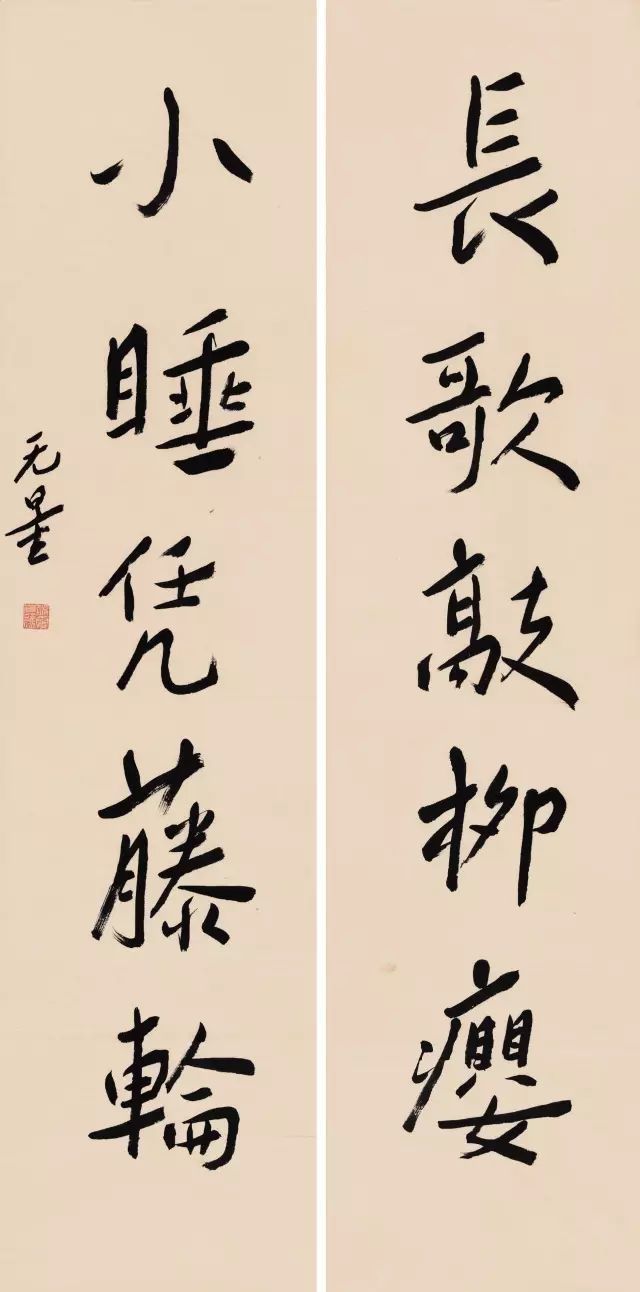 長歌敲柳癭
小睡凭藤輪
无量